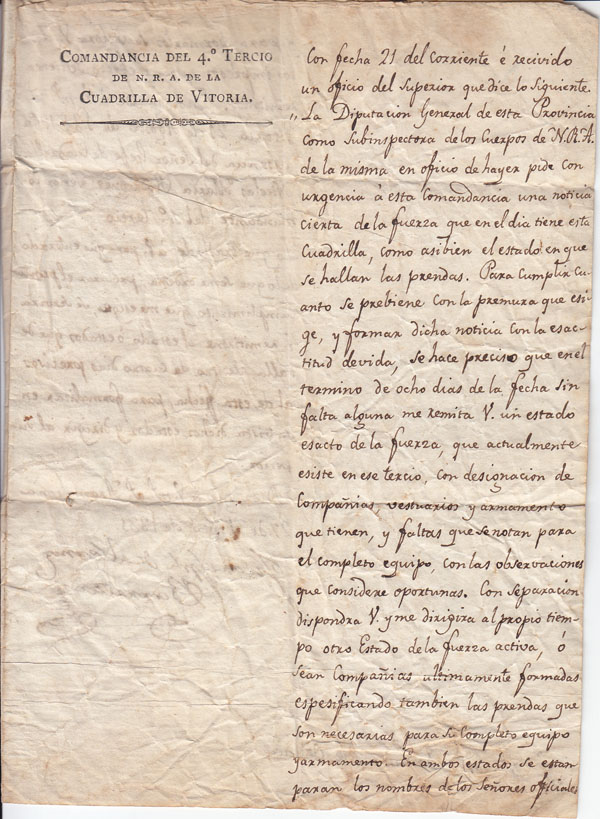 COMANDANCIA DEL 4.º TERCIO
DE N. R. A. DE LA
CUADRILLA DE VITORIA.
Con fecha 21 del corriente é recivido
un oficio del Superior que dice lo siguiente.
„ La Diputacion General de esta Provincia
como Subinspectora de los Cuerpos de N.R.A.
de la misma en oficio de hayer pide con
urgencia á esta Comandancia una noticia
cierta de la fuerza que en el dia tiene esta
Cuadrilla, como asibien el estado en que
se hallan las prendas. Para Cumplir Cu-
anto se prebiene con la premura que esi-
ge, y formar dicha noticia con la esac-
titud devida, se hace preciso que en el
termino de ocho dias de la fecha sin
falta alguna me remita V. un estado
esacto de la fuerza, que actualmente
esiste en ese tercio, con designacion de
Compañias, vestuarios y armamento
que tienen, y faltas que se notan para
el completo equipo, con las observaciones
que considere oportunas. Con separacion
dispondra V. y me dirigira al propio tiem-
po otro Estado de la fuerza activa, ó
sean Compañias ultimamente formadas
espesificando tambien las prendas que
son necesarias para su Completo equipo
y armamento. En ambos estados se estan
paran los nombres de los Señores oficiales